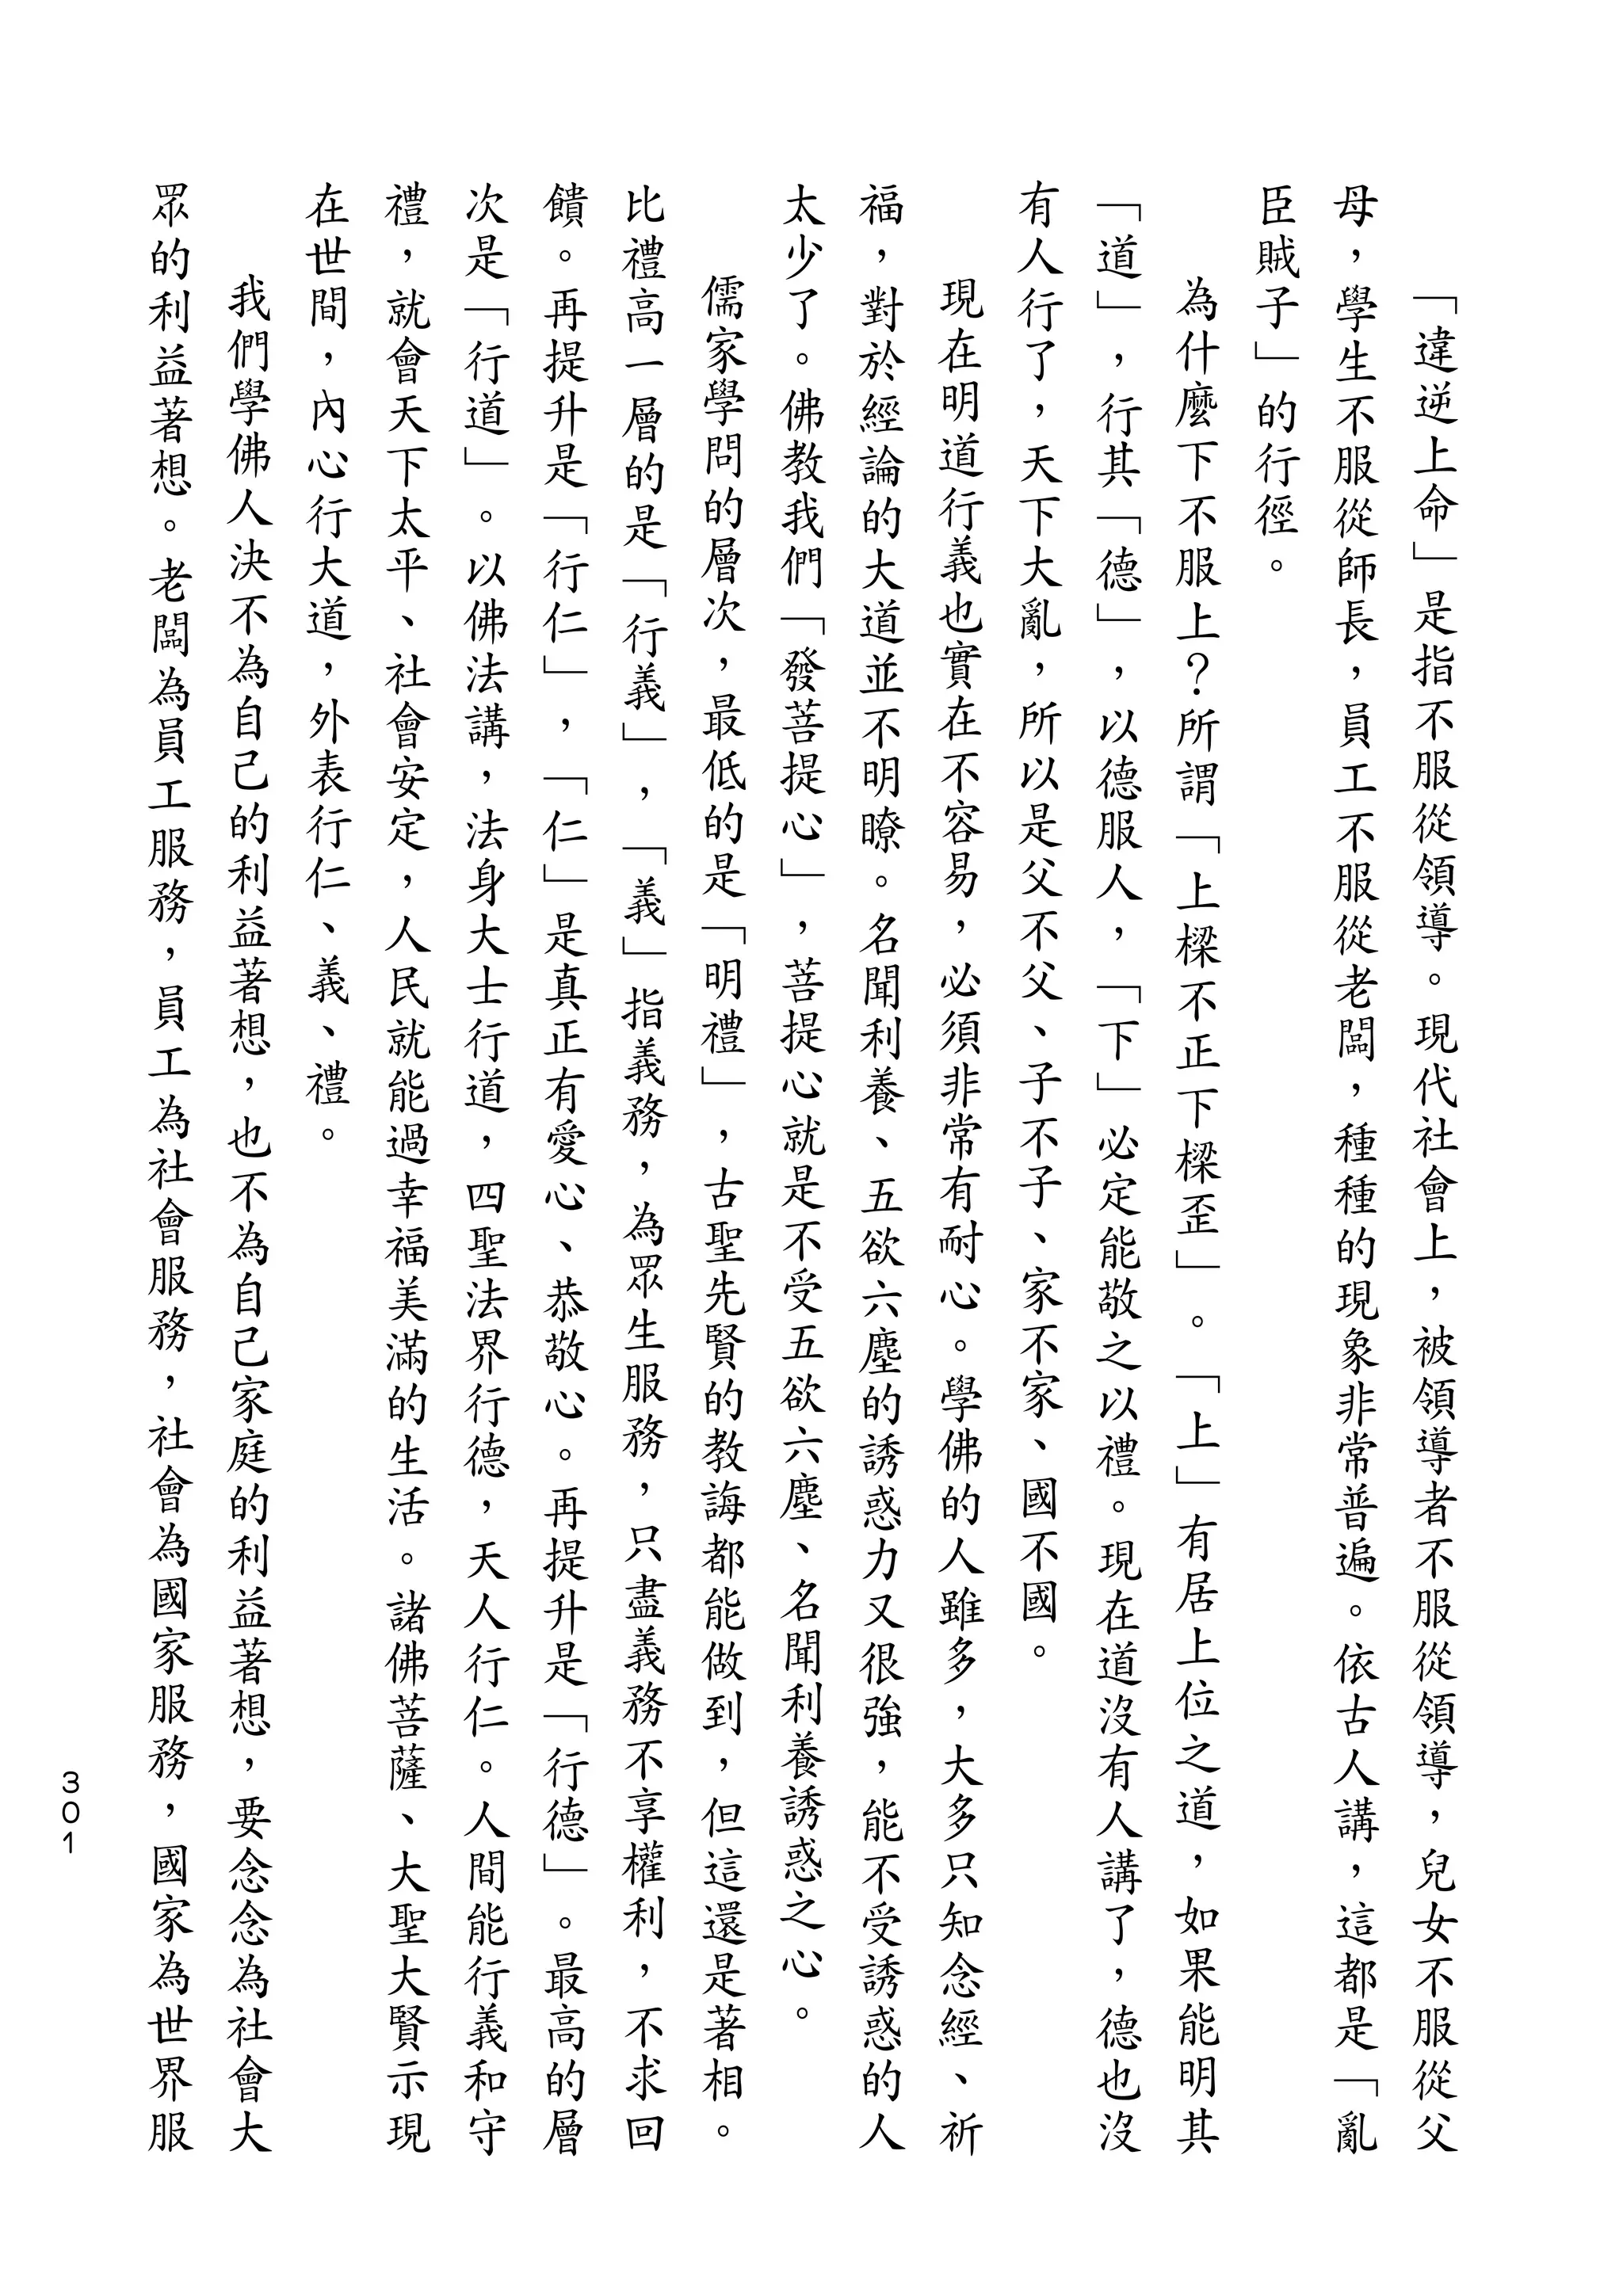 「違逆上命」是指不服從領導。現代社會上，被領導者不服從領導，兒女不服從父
母，學生不服從師長，員工不服從老闆，種種的現象非常普遍。依古人講，這都是「亂
臣賊子」的行徑。
為什麼下不服上？所謂「上樑不正下樑歪」。「上」有居上位之道，如果能明其
「道」，行其「德」，以德服人，「下」必定能敬之以禮。現在道沒有人講了，德也沒
有人行了，天下大亂，所以是父不父、子不子、家不家、國不國。
現在明道行義也實在不容易，必須非常有耐心。學佛的人雖多，大多只知念經、祈
福，對於經論的大道並不明瞭。名聞利養、五欲六塵的誘惑力又很強，能不受誘惑的人
太少了。佛教我們「發菩提心」，菩提心就是不受五欲六塵、名聞利養誘惑之心。
儒家學問的層次，最低的是「明禮」，古聖先賢的教誨都能做到，但這還是著相。
比禮高一層的是「行義」，「義」指義務，為眾生服務，只盡義務不享權利，不求回
饋。再提升是「行仁」，「仁」是真正有愛心、恭敬心。再提升是「行德」。最高的層
次是「行道」。以佛法講，法身大士行道，四聖法界行德，天人行仁。人間能行義和守
禮，就會天下太平、社會安定，人民就能過幸福美滿的生活。諸佛菩薩、大聖大賢示現
在世間，內心行大道，外表行仁、義、禮。
我們學佛人決不為自己的利益著想，也不為自己家庭的利益著想，要念念為社會大
眾的利益著想。老闆為員工服務，員工為社會服務，社會為國家服務，國家為世界服
301